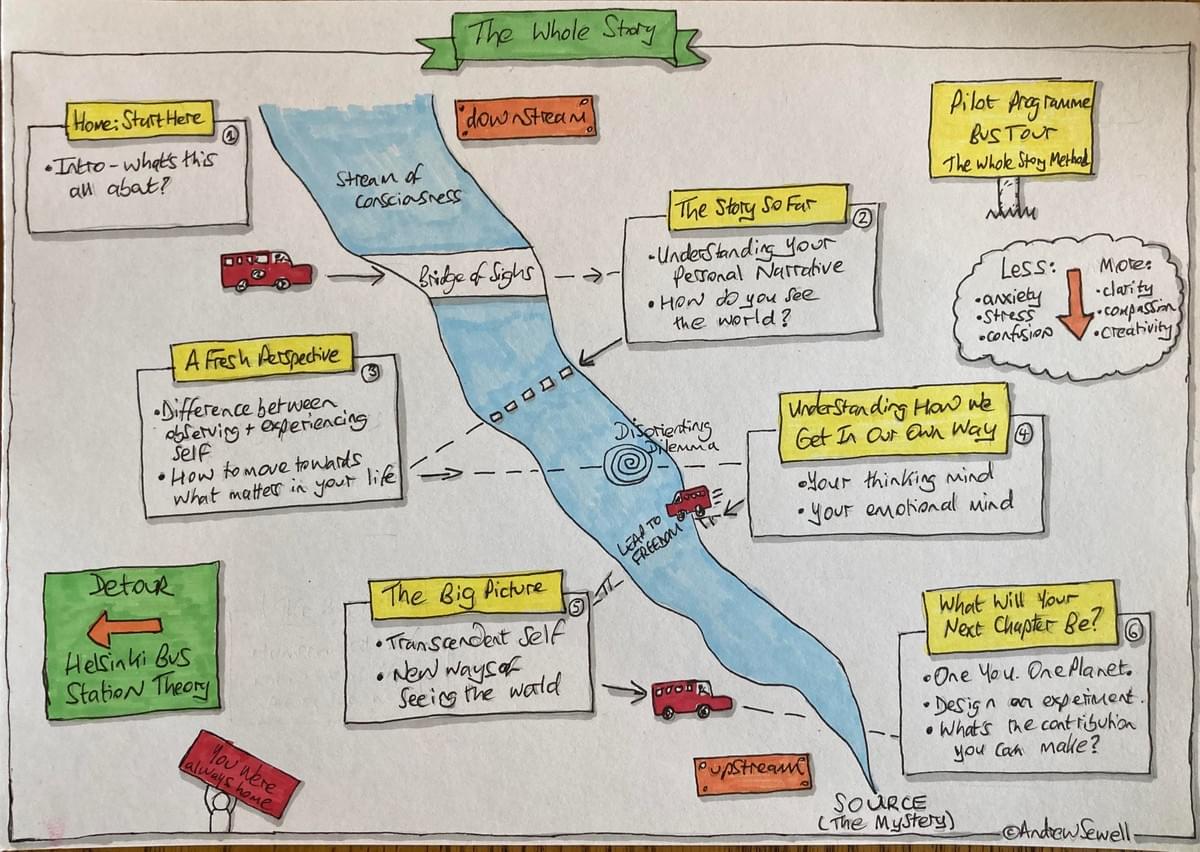 The Whole Story
downstream
Pilot Programme
Bus Tour
The Whole Story Method
Home: Start Here
1
• Intro - what's this
all about?
Stream of
consciousness
The Story So Far
2
• Understanding Your
Personal Narrative
• How do you see
the world?
Bridge of Sighs
Less:
• anxiety
• stress
• confusion
More:
• clarity
• compassion
• creativity
A Fresh Perspective
3
• Difference between
observing + experiencing
self
• How to move towards
what matters in your life
Disorienting
Dilemma
Understanding How We
Get In Our Own Way
4
• Your thinking mind
• Your emotional mind
LEAP TO
FREEDOM
Detour
Helsinki Bus
Station Theory
The Big Picture
5
• Transcendent Self
• New ways of
seeing the world
What Will Your
Next Chapter Be?
6
• One You. One Planet.
• Design an experiment.
• What's the contribution
you can make?
You were
always home
upstream
SOURCE
(The Mystery)
©Andrew Sewell